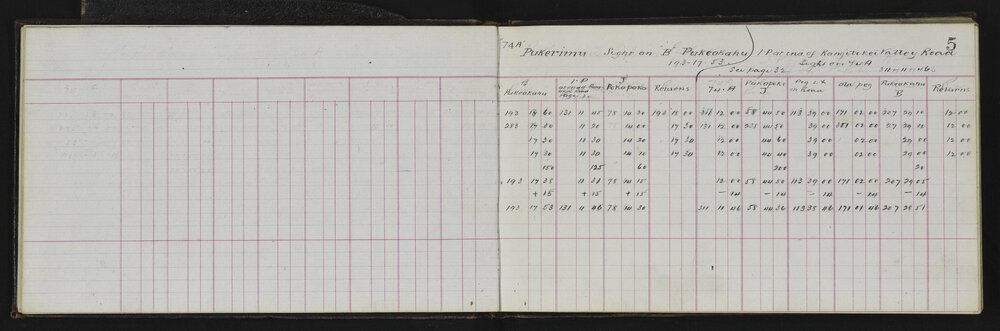 5
74A Pukerimu Sight on B Pukeokahu 1 P at end of Rangitikei Valley Road
193-17-53 Sight on 74A
See page 32 311-11-46
B Pukeokahu 1 P at end Road Page 32 J Pokopoko Returns 74.A Pokopoko J Peg LX in Road Old peg Pukeokahu B Returns
193 18 60 131 11 45 78 14 30 193 18 00 311 12 00 58 44 50 113 39 00 171 02 00 207 29 10 12 00
283 17 30 11 20 14 00 17 30 131 12 00 44 50 39 00 351 02 00 27 29 12 00
17 30 11 30 14 40 17 30 12 00 44 60 39 00 02 00 29 00 12 00
17 30 11 30 14 10 17 30 12 00 44 40 39 00 02 00 29 00 12 00
150 125 60 200 20
193 17 38 11 31 78 14 15 12 00 58 44 50 113 39 00 171 02 00 207 29 05
+ 15 + 15 + 15 - 14 - 14 - 14 - 14 - 14
193 17 53 131 11 46 78 14 30 311 11 46 58 44 36 113 38 46 171 01 46 207 28 51